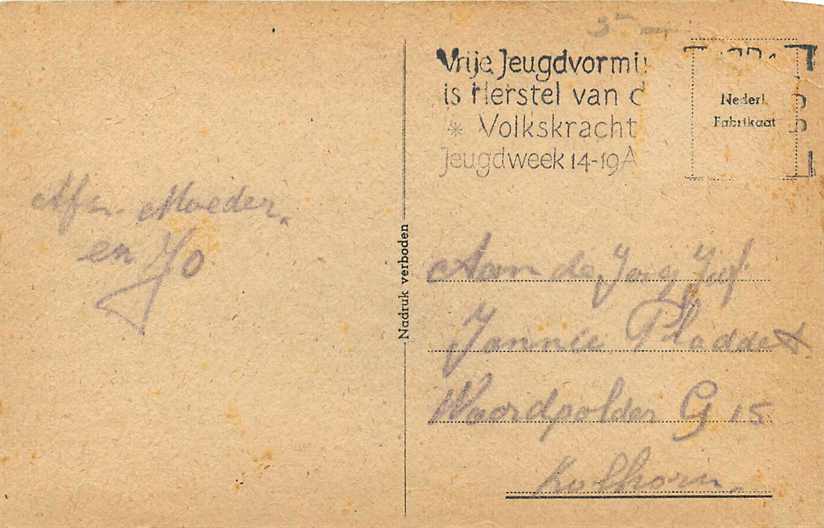 Vrije Jeugdvormi
is Herstel van d
* Volkskracht
Jeugdweek 14-19A
Nederl.
Fabrikaat
Afz. Moeder.
en Jo
Nadruk verboden
Aan de Jong Juf.
Jannie Pladdet
Waardpolder G 15
Kolhorn.